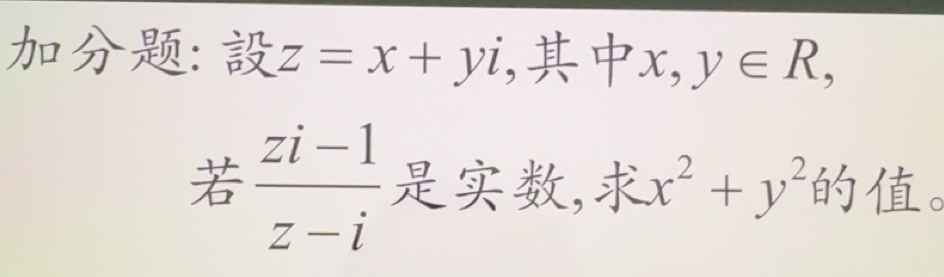 加分题: 設z = x + yi,其中x, y ∈ R,
若 (zi − 1)/(z − i) 是实数,求x² + y²的值。